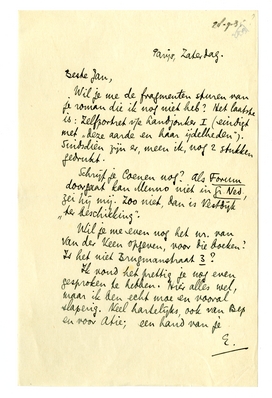 Parijs, Zaterdag.
Beste Jan,
Wil je me de fragmenten sturen van
je roman die ik nog niet heb? Het laatste
is: Zelfportret v/e Landjonker I (eindigt
met "deze aarde en haar ijdelheden").
Sindsdien zijn er, meen ik, nog 2 stukken
gedrukt.
Schrijf je Coenen nog? Als Forum
doorgaat kan Menno niet in Gr. Ned.,
zei hij mij. Zoo niet, dan is Vestdijk
"ter beschikking".
Wil je me even nog het nr. van
Van der Keen opgeven, voor die boeken?
Is het niet Brugmanstraat 3?
Ik vond het prettig je nog even
gesproken te hebben. Hier alles wel,
maar ik ben echt moe en vooral
slaperig. Veel hartelijks, ook van Bep
en voor Atie; een hand van je
E.